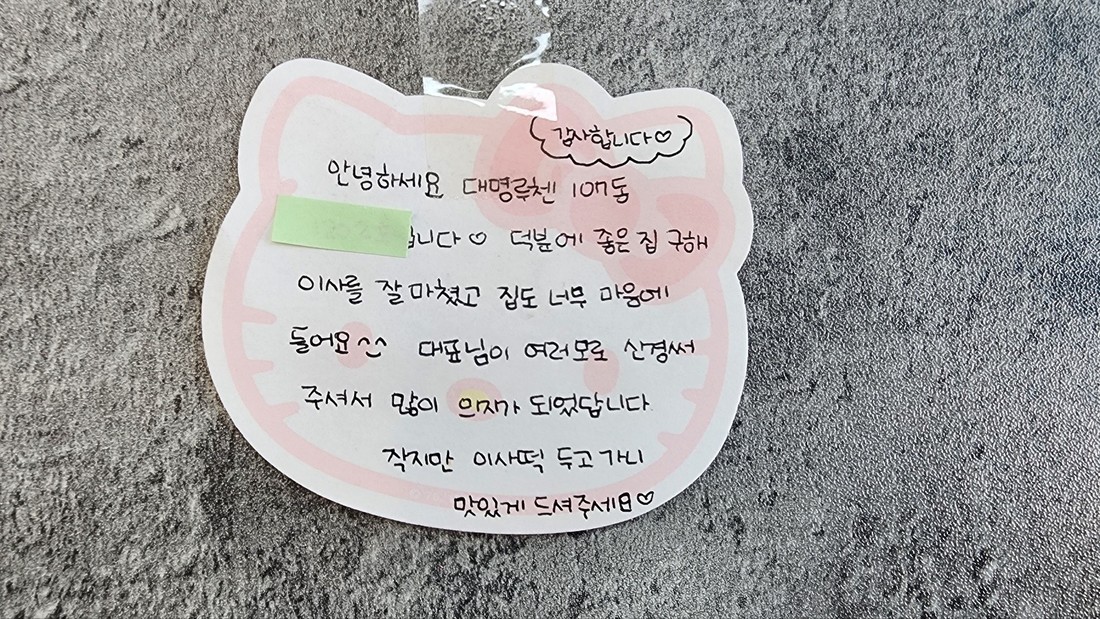 감사합니다♡
안녕하세요 대명루첸 107동
입니다♡ 덕분에 좋은 집 구해
이사를 잘 마쳤고 집도 너무 마음에
들어요^^ 대표님이 여러모로 신경써
주셔서 많이 의지가 되었답니다
작지만 이사떡 두고 가니
맛있게 드셔주세요♡